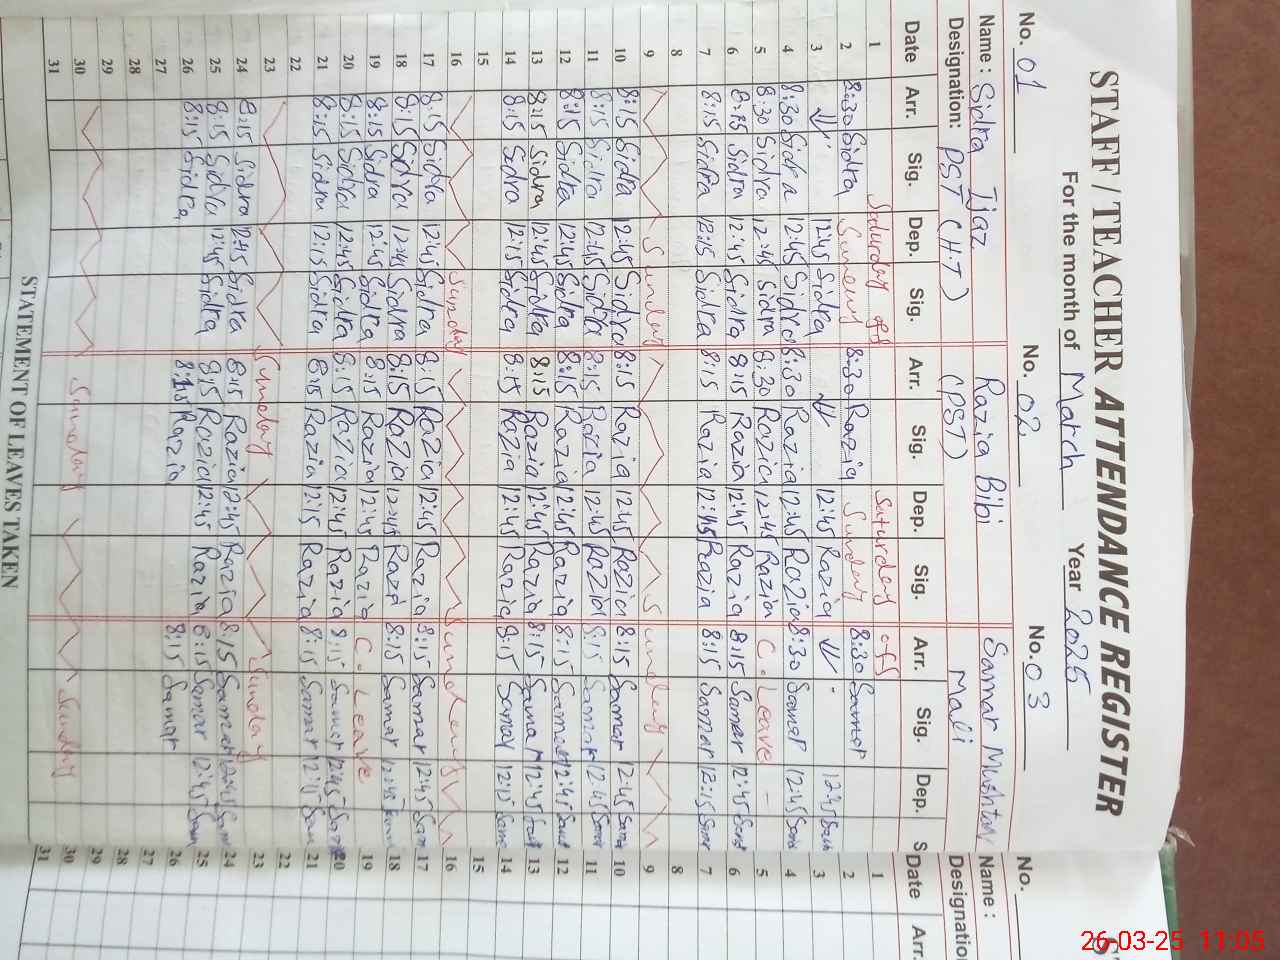 STAFF / TEACHER ATTENDANCE REGISTER
For the month of March Year 2025
No. 01 No. 02 No. 03 No.
Name : Sidra Ijaz Razia Bibi Samar Mushtaq Name :
Designation: PST (H.T) (PST) Mali Designation
Date Arr. Sig. Dep. Sig. Arr. Sig. Dep. Sig. Arr. Sig. Dep. S Date Arr.
1 Saturday off Saturday off 1
2 8:30 Sidra Sunday 8:30 Razia Sunday 8:30 Samar 2
3 12:45 Sidra 12:45 Razia 12:45 3
4 8:30 Sidra 12:45 Sidra 8:30 Razia 12:45 Razia 8:30 Samar 12:45 4
5 8:30 Sidra 12:45 Sidra 8:30 Razia 12:45 Razia C. Leave - 5
6 8:15 Sidra 12:45 Sidra 8:15 Razia 12:45 Razia 8:15 Samar 12:45 6
7 8:15 Sidra 12:15 Sidra 8:15 Razia 12:15 Razia 8:15 Samar 12:15 7
8 8
9 Sunday Sunday 9
10 8:15 Sidra 12:45 Sidra 8:15 Razia 12:45 Razia 8:15 Samar 12:45 10
11 8:15 Sidra 12:45 Sidra 8:15 Razia 12:45 Razia 8:15 Samar 12:45 11
12 8:15 Sidra 12:45 Sidra 8:15 Razia 12:45 Razia 8:15 Samar 12:45 12
13 8:15 Sidra 12:45 Sidra 8:15 Razia 12:45 Razia 8:15 Samar 12:45 13
14 8:15 Sidra 12:15 Sidra 8:15 Razia 12:45 Razia 8:15 Samar 12:15 14
15 15
16 Sunday Sunday 16
17 8:15 Sidra 12:45 Sidra 8:15 Razia 12:45 Razia 8:15 Samar 12:45 17
18 8:15 Sidra 12:45 Sidra 8:15 Razia 12:45 Razia 8:15 Samar 12:45 18
19 8:15 Sidra 12:45 Sidra 8:15 Razia 12:45 Razia C. Leave 19
20 8:15 Sidra 12:45 Sidra 8:15 Razia 12:45 Razia 8:15 Samar 12:45 20
21 8:15 Sidra 12:15 Sidra 8:15 Razia 12:15 Razia 8:15 Samar 12:15 21
22 22
23 Sunday Sunday 23
24 8:15 Sidra 12:45 Sidra 8:15 Razia 12:45 Razia 8:15 Samar 12:45 24
25 8:15 Sidra 12:45 Sidra 8:15 Razia 12:45 Razia 8:15 Samar 12:45 25
26 8:15 Sidra 8:15 Razia 8:15 Samar 26
27 27
28 28
29 29
30 Sunday Sunday 30
31 31
STATEMENT OF LEAVES TAKEN
26-03-25 11:05